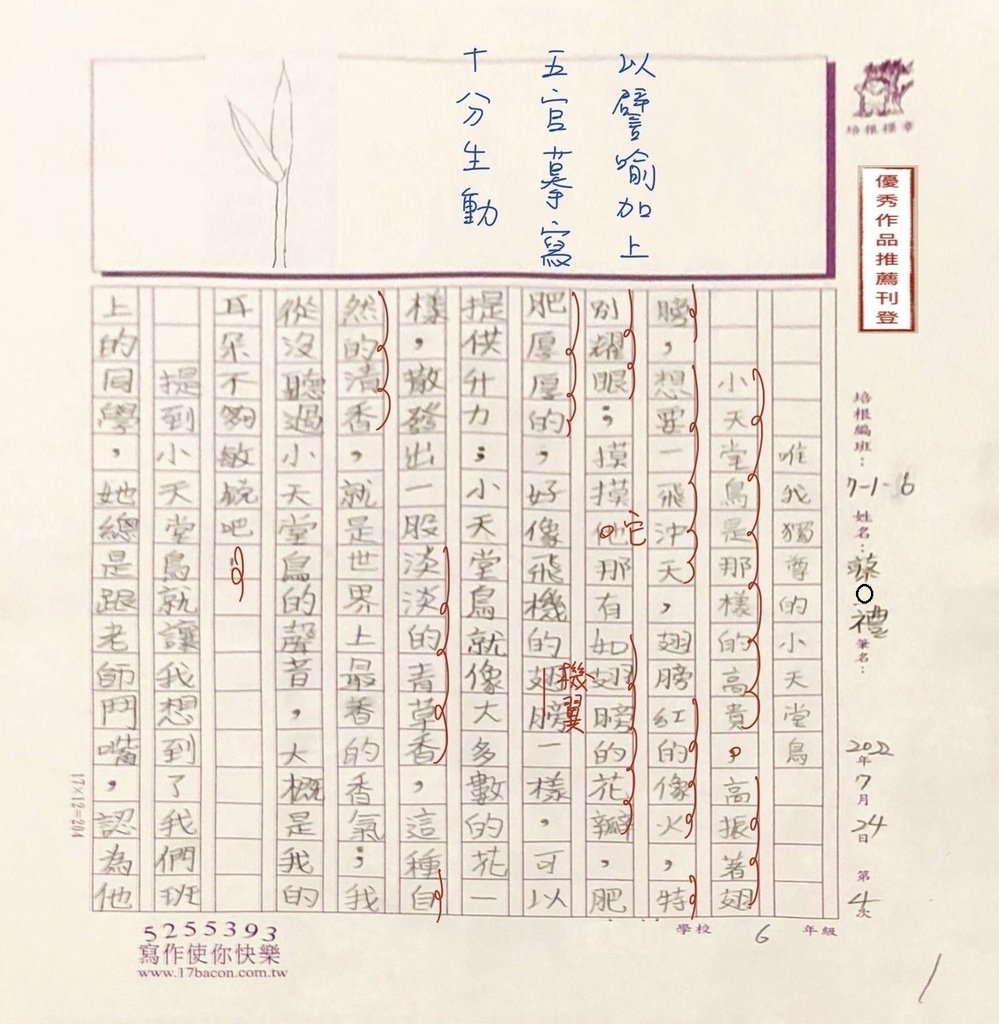 培根標章
優秀作品推薦刊登
培根編班：7-1-6 姓名：蔡○禮 筆名：
2022年7月24日 第4次
以譬喻加上
五官摹寫
十分生動
唯我獨尊的小天堂鳥
小天堂鳥是那樣的高貴，高振著翅
膀，想要一飛沖天，翅膀紅的像火，特
別耀眼；摸摸他那有如翅膀的花瓣，肥
它
肥厚厚的，好像飛機的翅膀一樣，可以
機翼
提供升力；小天堂鳥就像大多數的花一
樣，散發出一股淡淡的青草香，這種自
然的清香，就是世界上最香的香氣；我
從沒聽過小天堂鳥的聲音，大概是我的
耳朵不夠敏銳吧
提到小天堂鳥就讓我想到了我們班
上的同學，她總是跟老師鬥嘴，認為他
17×12=204
學校 6 年級
5255393
寫作使你快樂
www.17bacon.com.tw
1